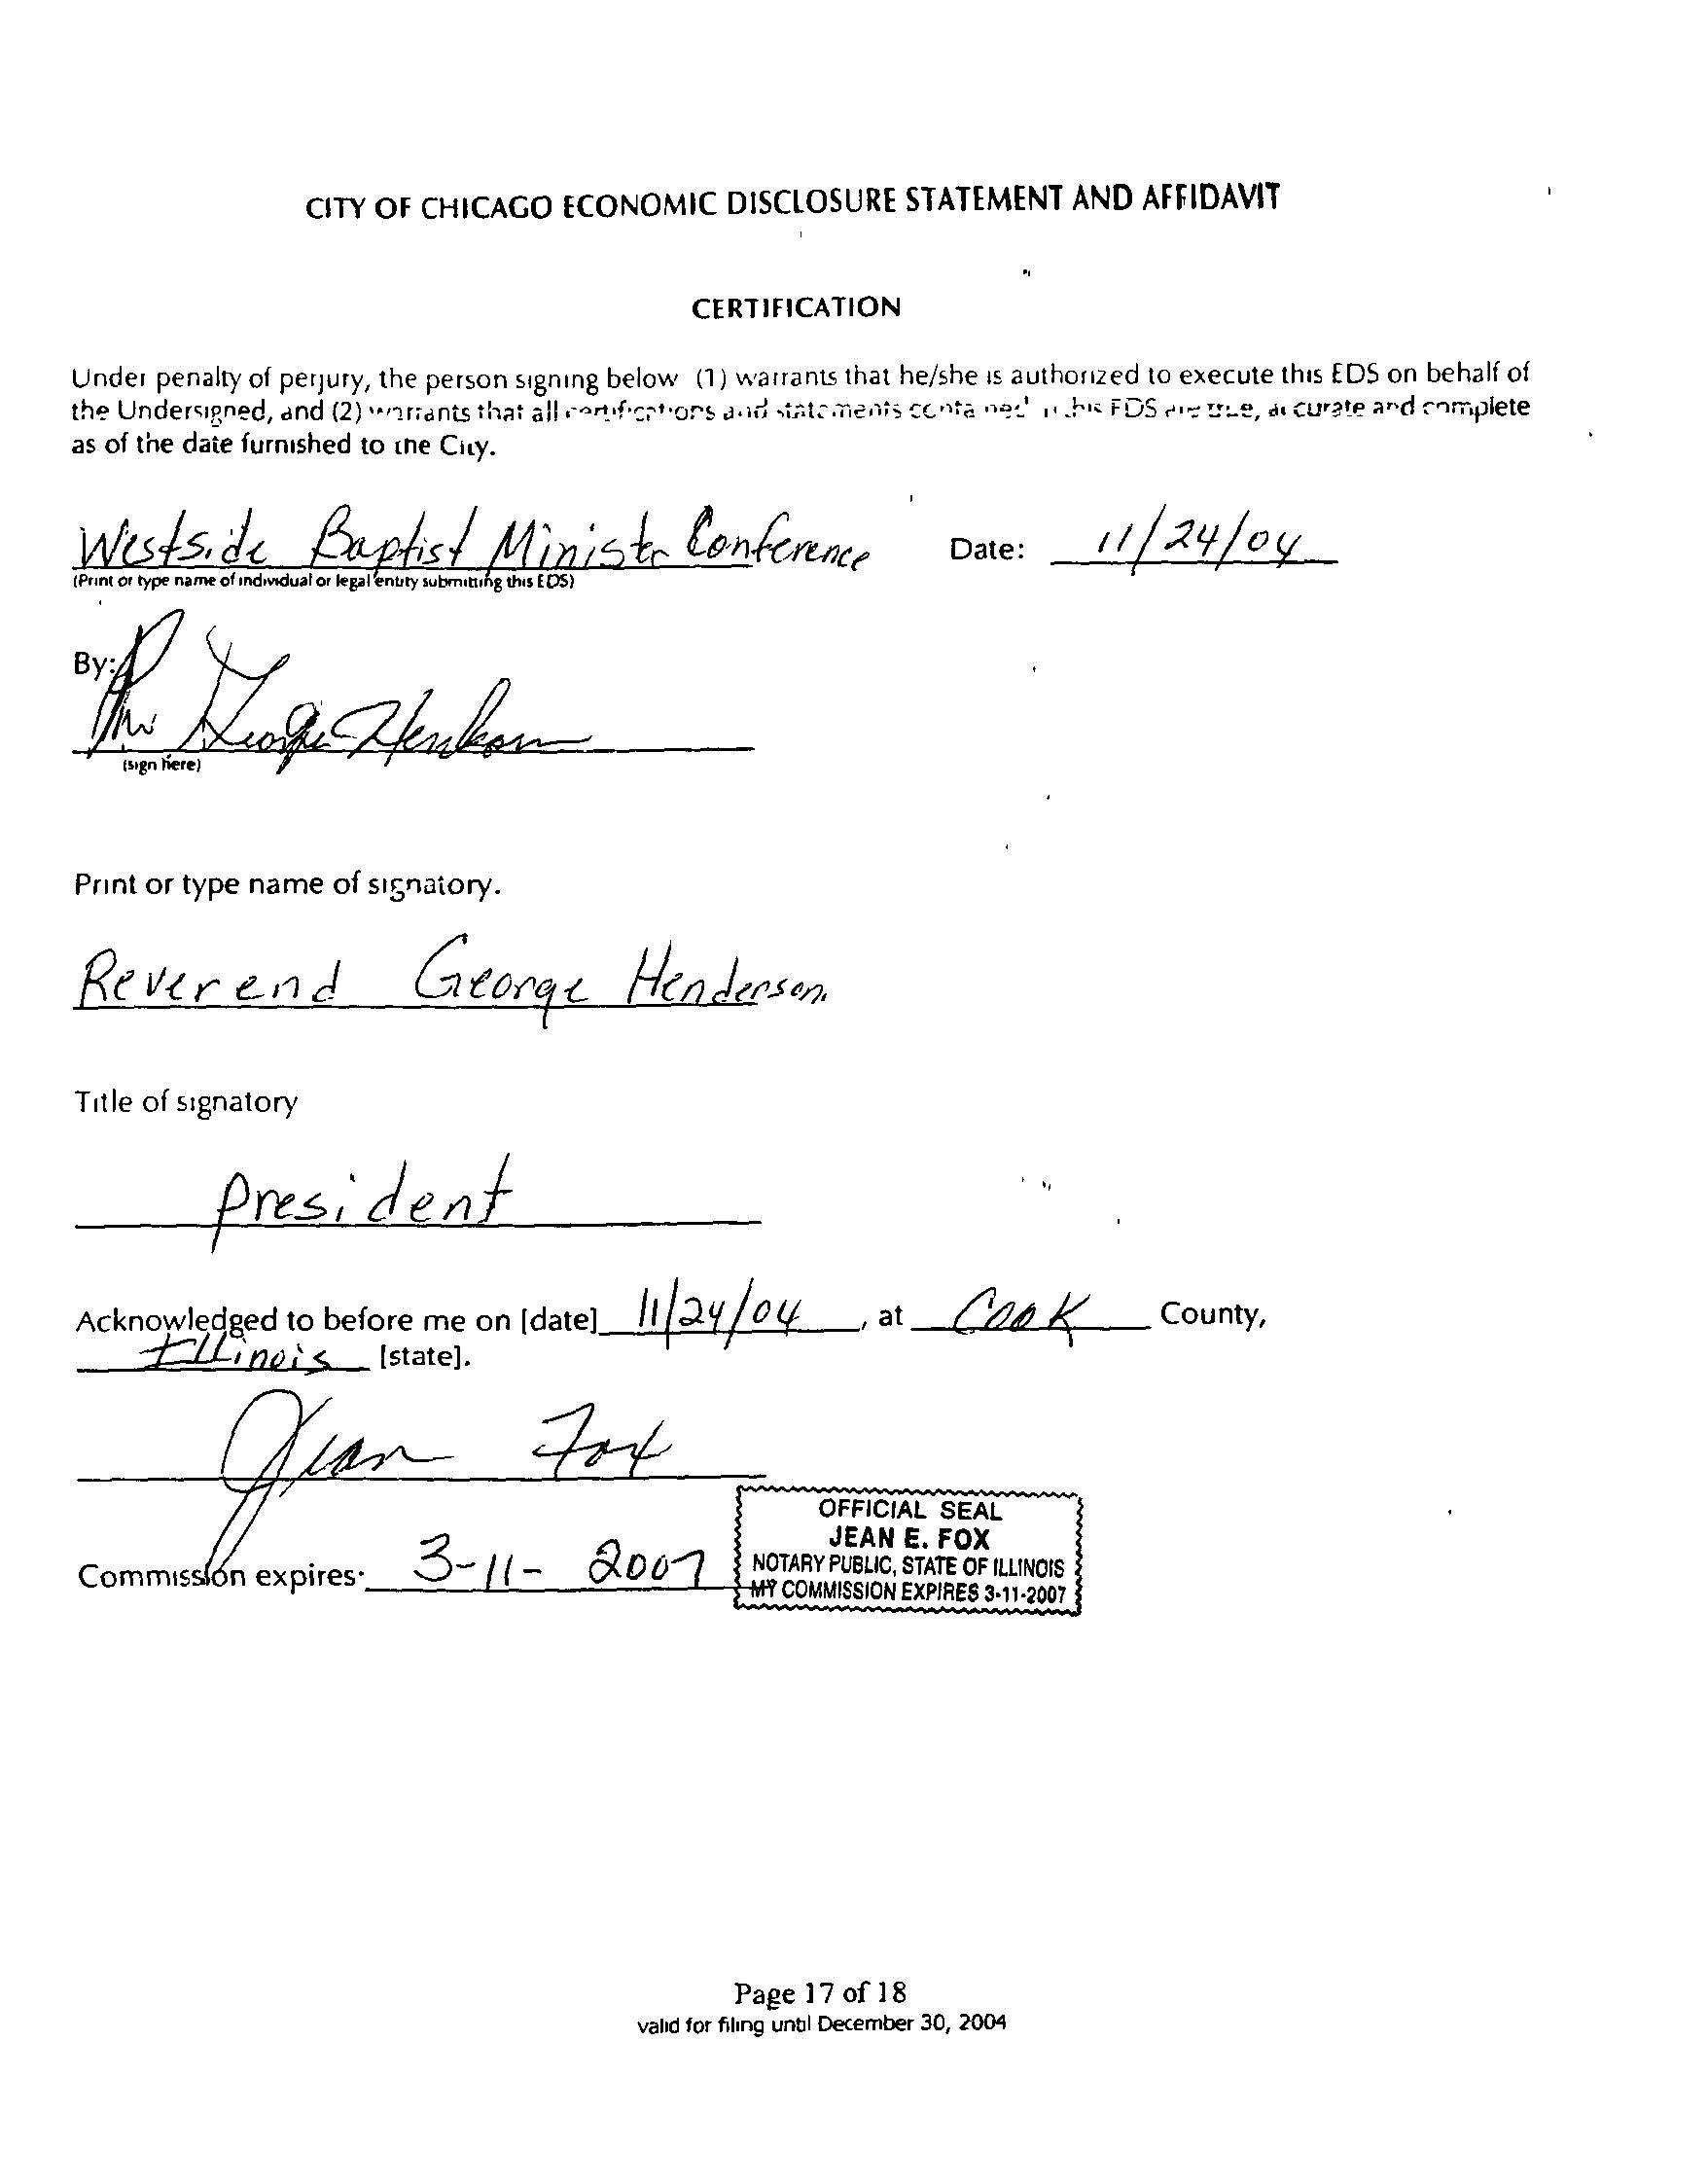 CITY OF CHICAGO ECONOMIC DISCLOSURE STATEMENT AND AFFIDAVIT
CERTIFICATION
Under penalty of perjury, the person signing below (1) warrants that he/she is authorized to execute this EDS on behalf of
the Undersigned, and (2) warrants that all certifications and statements contained in this EDS are true, accurate and complete
as of the date furnished to the City.
Westside Baptist Ministr Conference Date: 11/24/04
(Print or type name of individual or legal entity submitting this EDS)
By:
George Henderson
(sign here)
Print or type name of signatory.
Reverend George Henderson
Title of signatory
President
Acknowledged to before me on [date] 11/24/04, at Cook County,
Illinois [state].
Jean Fox
OFFICIAL SEAL
JEAN E. FOX
NOTARY PUBLIC, STATE OF ILLINOIS
MY COMMISSION EXPIRES 3-11-2007
Commission expires: 3-11-2007
Page 17 of 18
valid for filing until December 30, 2004